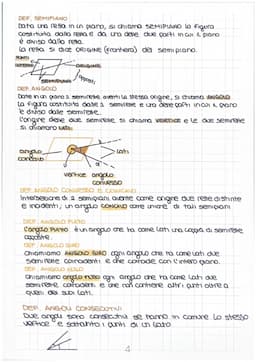 DEF. SEMIPIANO
Data una retta in un piano, si chiama SEMIPIANO la figura
costituita dalla retta e da una delle due parti in cui il piano
è diviso dalla retta.
La retta si dice ORIGINE (frontiera) del semipiano.
ORIGINE
SEMIPIANO
opposti
DEF. ANGOLO
Date in un piano 2 semirette aventi la stessa origine, si chiama ANGOLO
la figura costituita dalle 2 semirette e una delle parti in cui il piano
è diviso dalle semirette.
L'origine delle due semirette, si chiama VERTICE e le due semirette
si chiamano lati.
angolo
concavo
lati
vertice angolo
convesso
DEF. ANGOLO CONVESSO E CONCAVO
Intersezione di 2 semipiani aventi come origine due rette distinte
e incidenti; un angolo concavo come unione di tali semipiani
DEF. ANGOLO PIATTO
L'angolo PIATTO è un angolo che ha come lati una coppia di semirette
opposte.
DEF. ANGOLO GIRO
Chiamiamo ANGOLO GIRO ogni angolo che ha come lati due
semirette coincidenti e che coincide con l'intero piano.
DEF. ANGOLO NULLO
Chiamiamo angolo nullo ogni angolo che ha come lati due
semirette coincidenti e che non contiene altri punti oltre a
quelli dei suoi lati.
DEF. ANGOLI CONSECUTIVI
Due angoli sono consecutivi se hanno in comune lo stesso
vertice e soltanto i punti di un lato
4